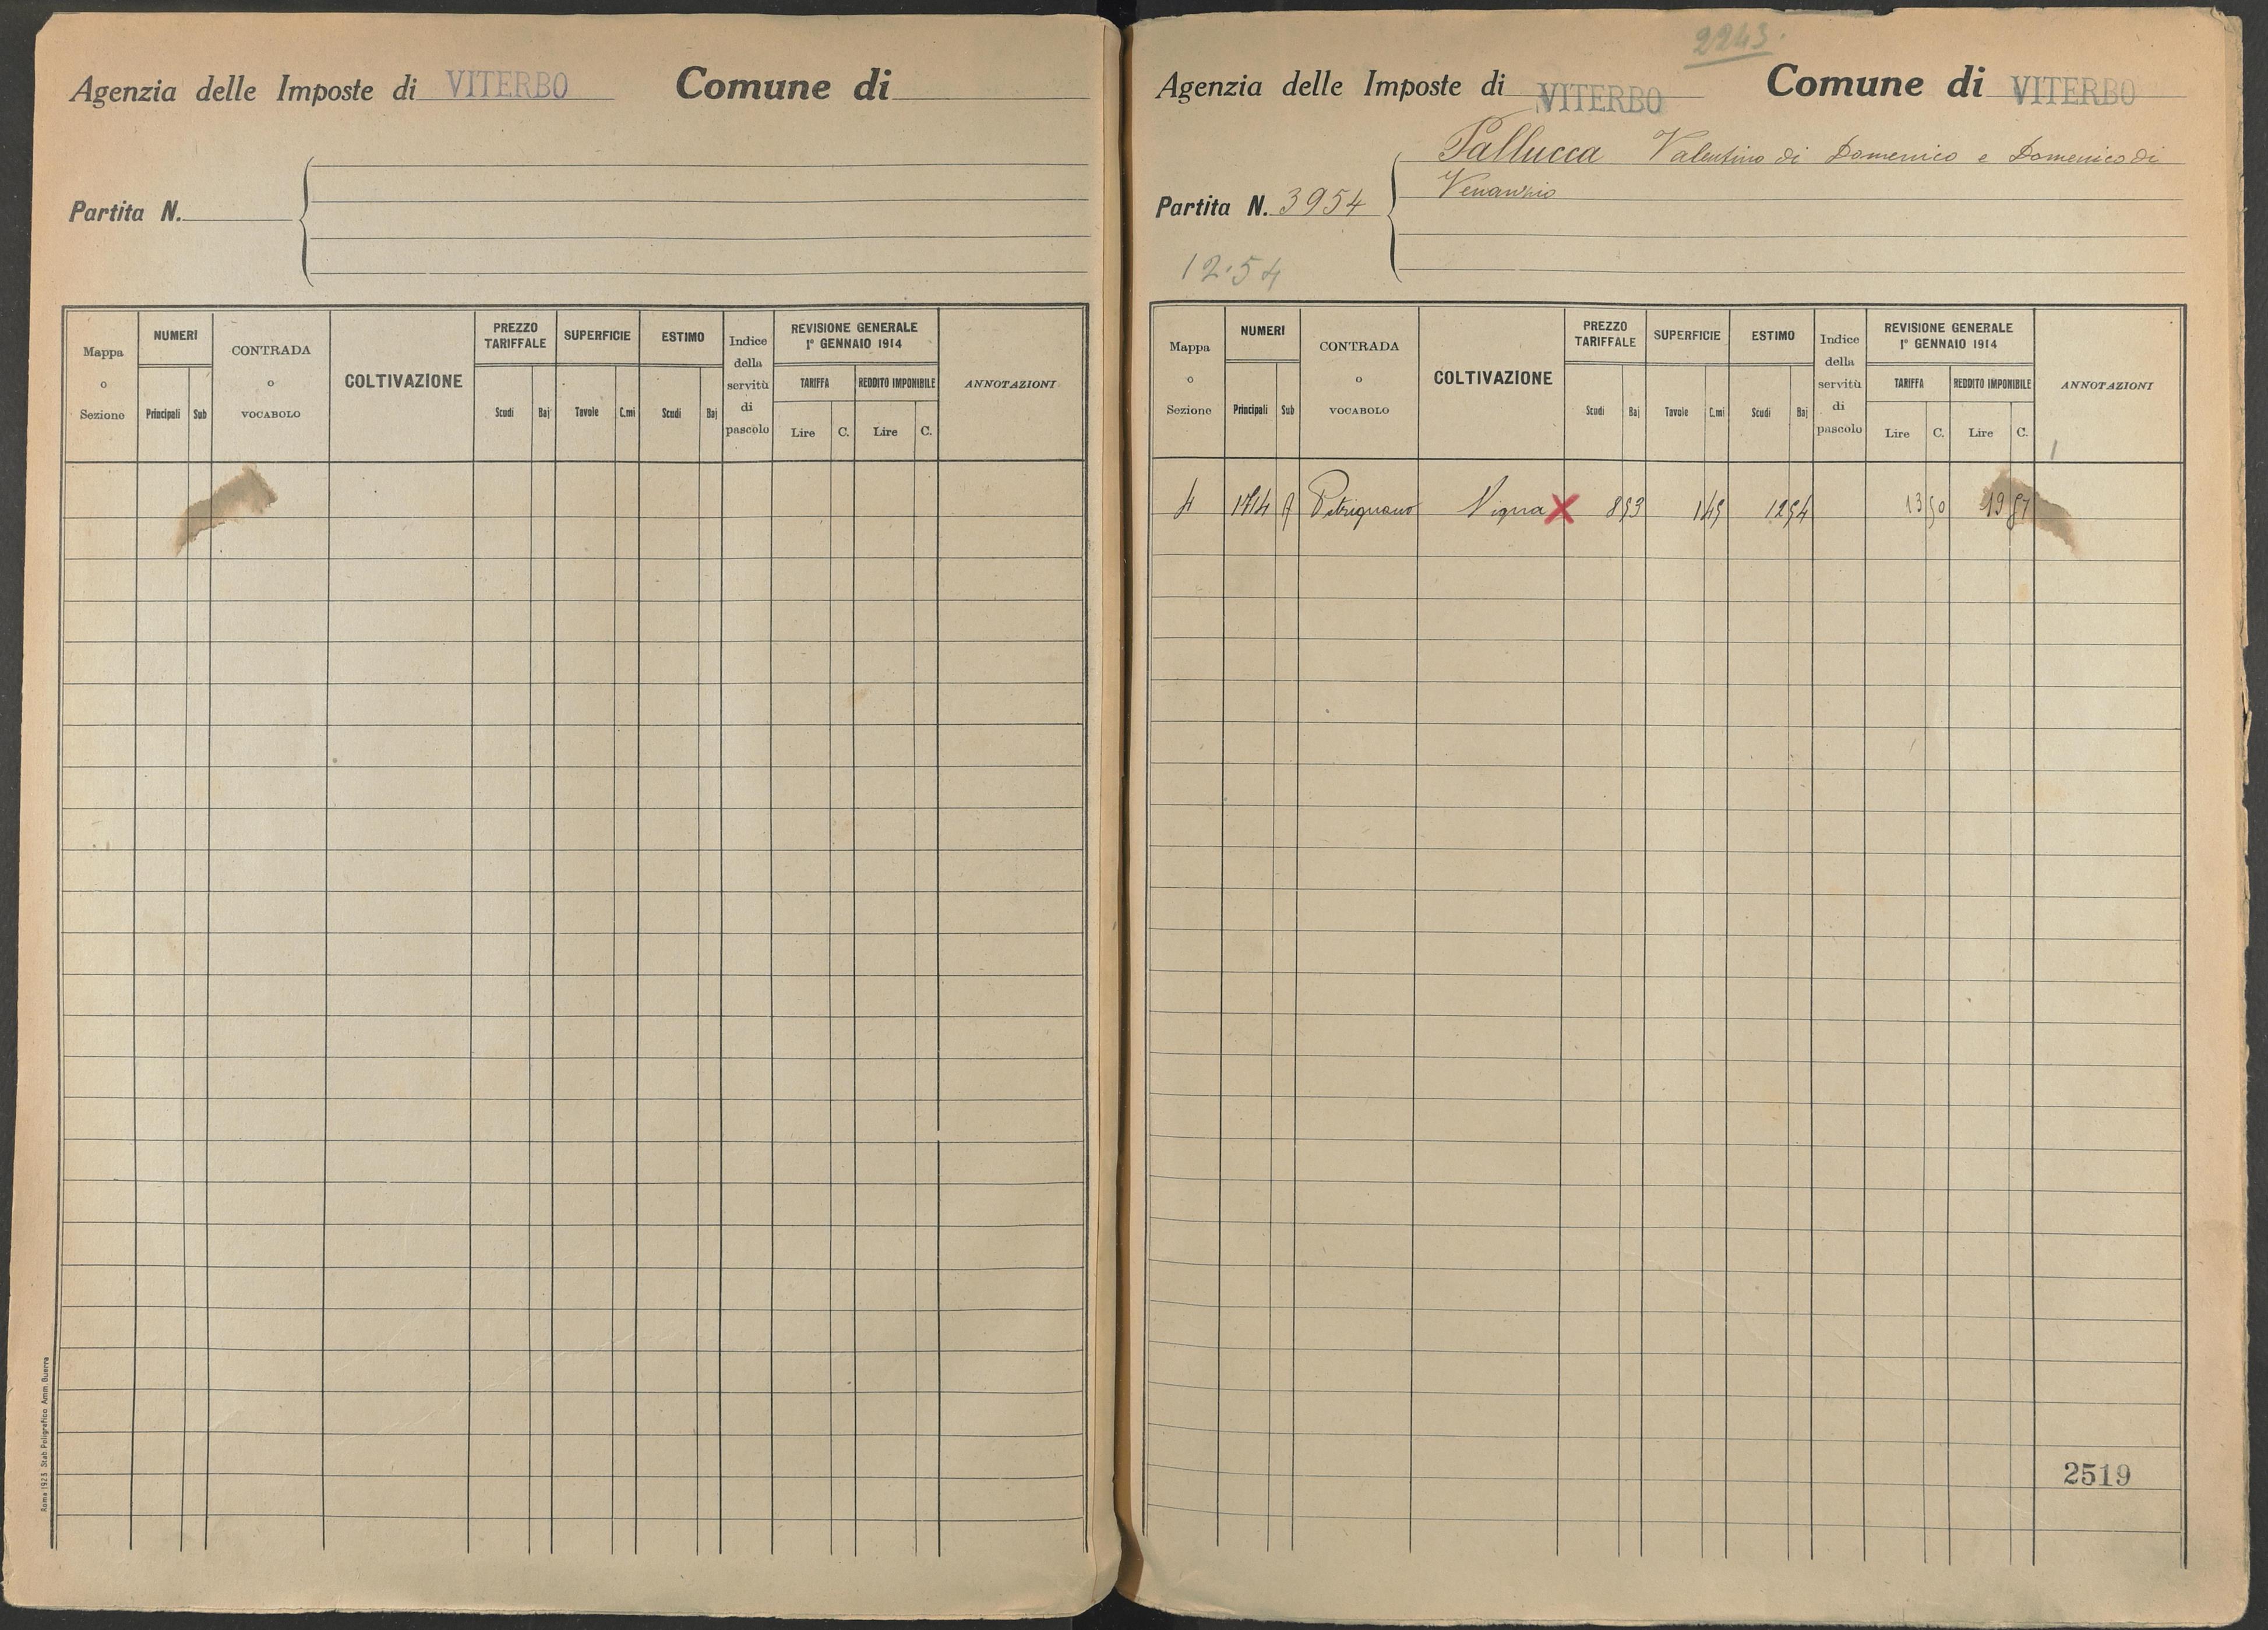 Agenzia delle Imposte di VITERBO Comune di
Partita N.
Mappa o Sezione NUMERI CONTRADA o VOCABOLO COLTIVAZIONE PREZZO TARIFFALE SUPERFICIE ESTIMO Indice della servitù di pascolo REVISIONE GENERALE 1° GENNAIO 1914 ANNOTAZIONI
Principali Sub Scudi Baj Tavole C.mi Scudi Baj TARIFFA REDDITO IMPONIBILE
Lire C. Lire C.
Roma 1923. Stab. Poligrafico Amm. Guerra
2243.
Agenzia delle Imposte di VITERBO Comune di VITERBO
Pallucca Valentino di Domenico e Domenico di
Venanzio
Partita N. 3954
12.54
Mappa o Sezione NUMERI CONTRADA o VOCABOLO COLTIVAZIONE PREZZO TARIFFALE SUPERFICIE ESTIMO Indice della servitù di pascolo REVISIONE GENERALE 1° GENNAIO 1914 ANNOTAZIONI
Principali Sub Scudi Baj Tavole C.mi Scudi Baj TARIFFA REDDITO IMPONIBILE
Lire C. Lire C.
4 Petrignano Vigna X 13 50
2519